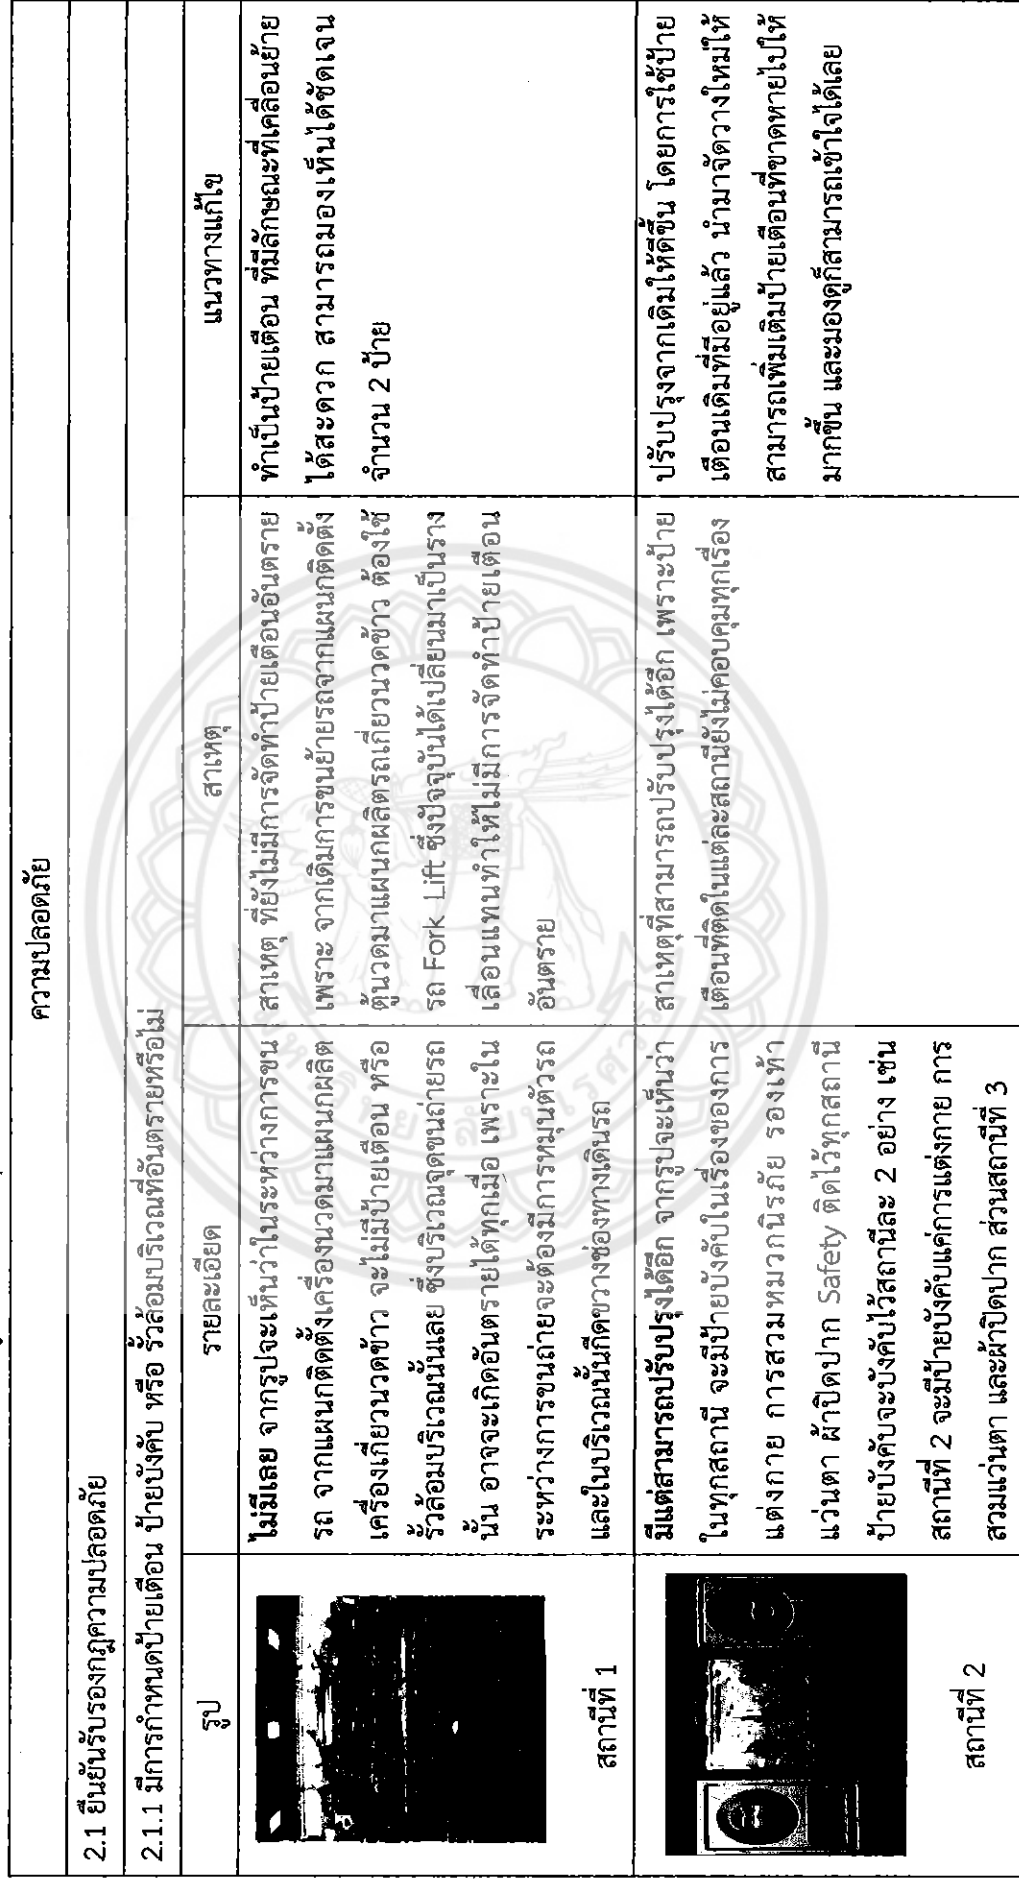 ความปลอดภัย
2.1 ยืนยันรับรองกฎความปลอดภัย
2.1.1 มีการกำหนดป้ายเตือน ป้ายบังคับ หรือ รั้วล้อมบริเวณที่อันตรายหรือไม่
รูป
รายละเอียด
สาเหตุ
แนวทางแก้ไข
สถานีที่ 1
ไม่มีเลย จากรูปจะเห็นว่าในระหว่างการขน
รถ จากแผนกติดตั้งเครื่องนวดมาแผนกผลิต
เครื่องเกี่ยวนวดข้าว จะไม่มีป้ายเตือน หรือ
รั้วล้อมบริเวณนั้นเลย ซึ่งบริเวณจุดขนถ่ายรถ
นั้น อาจจะเกิดอันตรายได้ทุกเมื่อ เพราะใน
ระหว่างการขนถ่ายจะต้องมีการหมุนตัวรถ
และในบริเวณนั้นกีดขวางช่องทางเดินรถ
สาเหตุ ที่ยังไม่มีการจัดทำป้ายเตือนอันตราย
เพราะ จากเดิมการขนย้ายรถจากแผนกติดตั้ง
ตู้นวดมาแผนกผลิตรถเกี่ยวนวดข้าว ต้องใช้
รถ Fork Lift ซึ่งปัจจุบันได้เปลี่ยนมาเป็นราง
เลื่อนแทนทำให้ไม่มีการจัดทำป้ายเตือน
อันตราย
ทำเป็นป้ายเตือน ที่มีลักษณะที่เคลื่อนย้าย
ได้สะดวก สามารถมองเห็นได้ชัดเจน
จำนวน 2 ป้าย
สถานีที่ 2
มีแต่สามารถปรับปรุงได้อีก จากรูปจะเห็นว่า
ในทุกสถานี จะมีป้ายบังคับในเรื่องของการ
แต่งกาย การสวมหมวกนิรภัย รองเท้า
แว่นตา ผ้าปิดปาก Safety ติดไว้ทุกสถานี
ป้ายบังคับจะบังคับไว้สถานีละ 2 อย่าง เช่น
สถานีที่ 2 จะมีป้ายบังคับแค่การแต่งกาย การ
สวมแว่นตา และผ้าปิดปาก ส่วนสถานีที่ 3
สาเหตุที่สามารถปรับปรุงได้อีก เพราะป้าย
เตือนที่ติดในแต่ละสถานียังไม่คอบคุมทุกเรื่อง
ปรับปรุงจากเดิมให้ดีขึ้น โดยการใช้ป้าย
เตือนเดิมที่มีอยู่แล้ว นำมาจัดวางใหม่ให้
สามารถเพิ่มเติมป้ายเตือนที่ขาดหายไปให้
มากขึ้น และมองดูก็สามารถเข้าใจได้เลย